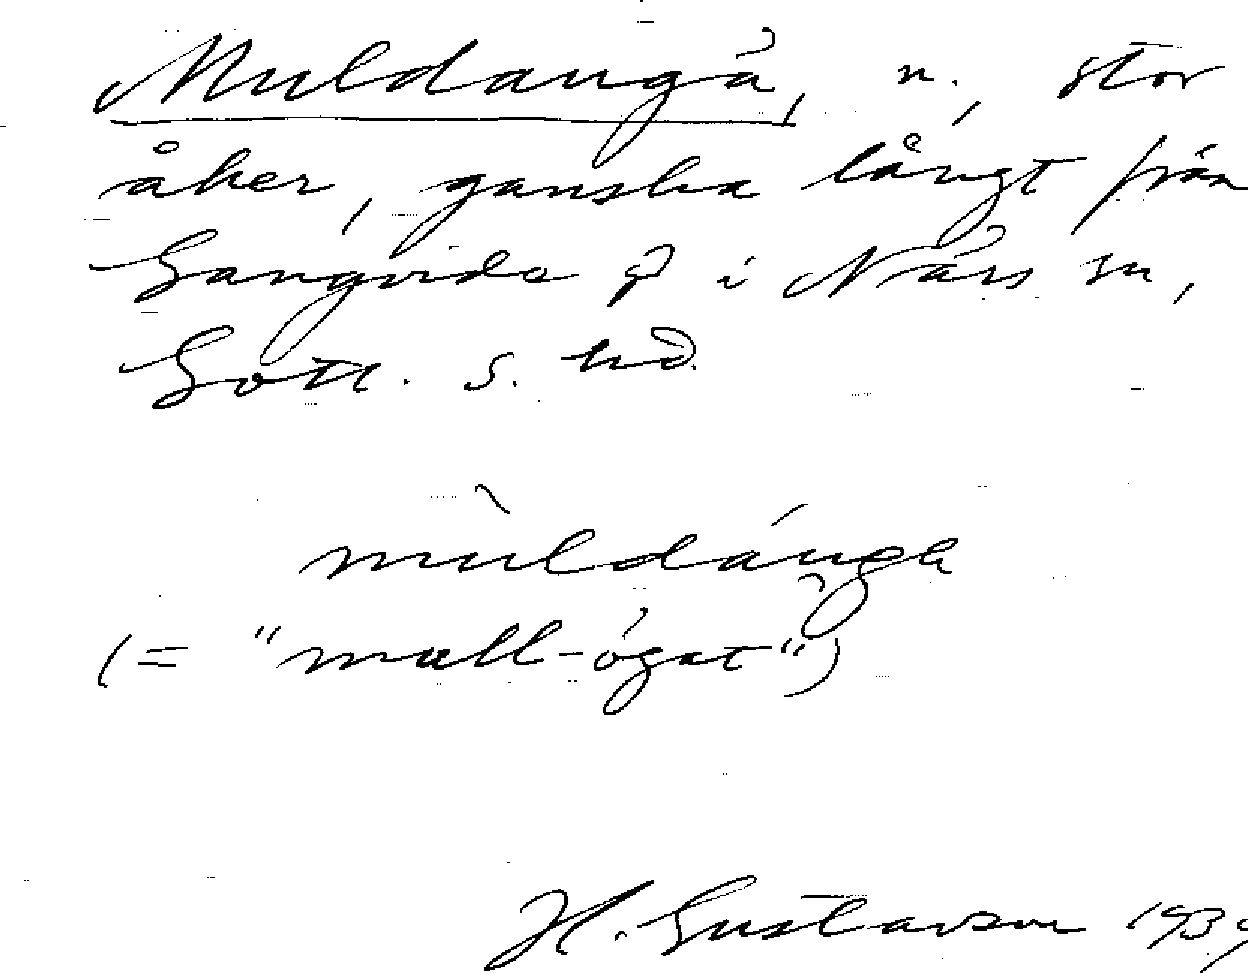 Muldaugå, n., stor
åker, ganska långt från
Gangvide i Närs sn,
Gotl. s. hd.
mùldáuga
(= "mull-ögat")
H. Gustavson 1939